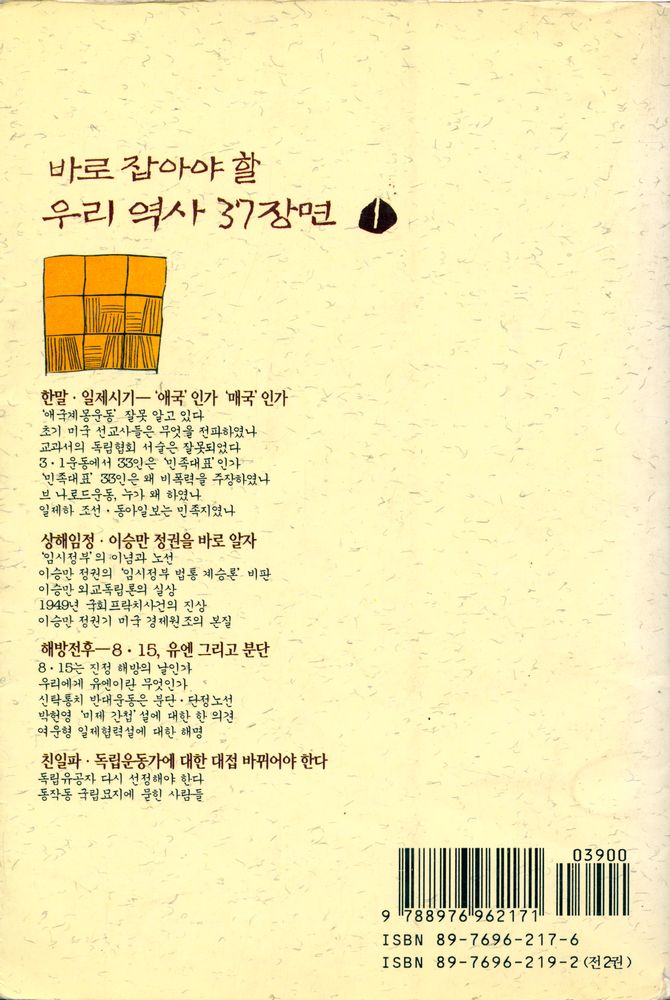 바로 잡아야 할
우리 역사 37장면 1
한말 · 일제시기— '애국' 인가 '매국' 인가
'애국계몽운동' 잘못 알고 있다
초기 미국 선교사들은 무엇을 전파하였나
교과서의 독립협회 서술은 잘못되었다
3 · 1운동에서 33인은 '민족대표' 인가
'민족대표' 33인은 왜 비폭력을 주장하였나
브 나로드운동, 누가 왜 하였나
일제하 조선 · 동아일보는 민족지였나
상해임정 · 이승만 정권을 바로 알자
'임시정부' 의 이념과 노선
이승만 정권의 '임시정부 법통 계승론' 비판
이승만 외교독립론의 실상
1949년 국회프락치사건의 진상
이승만 정권기 미국 경제원조의 본질
해방전후—8 · 15, 유엔 그리고 분단
8 · 15는 진정 해방의 날인가
우리에게 유엔이란 무엇인가
신탁통치 반대운동은 분단 · 단정노선
박헌영 '미제 간첩' 설에 대한 한 의견
여운형 일제협력설에 대한 해명
친일파 · 독립운동가에 대한 대접 바뀌어야 한다
독립유공자 다시 선정해야 한다
동작동 국립묘지에 묻힌 사람들
03900
9 788976 962171
ISBN 89-7696-217-6
ISBN 89-7696-219-2 (전2권)